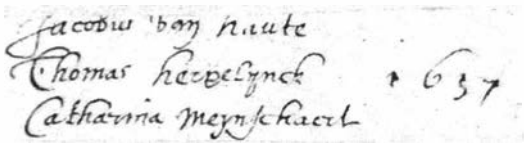 Jacobus van Haute
Thomas hereelynck 1637
Catharina Meynschaert